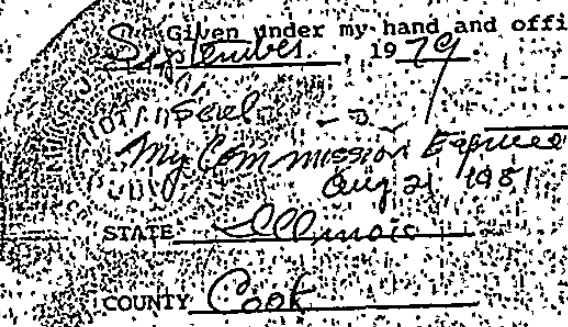 Given under my hand and offi
September, 1979.
Seal
My Commission Expires
Aug 21 1981
STATE Illinois
COUNTY Cook